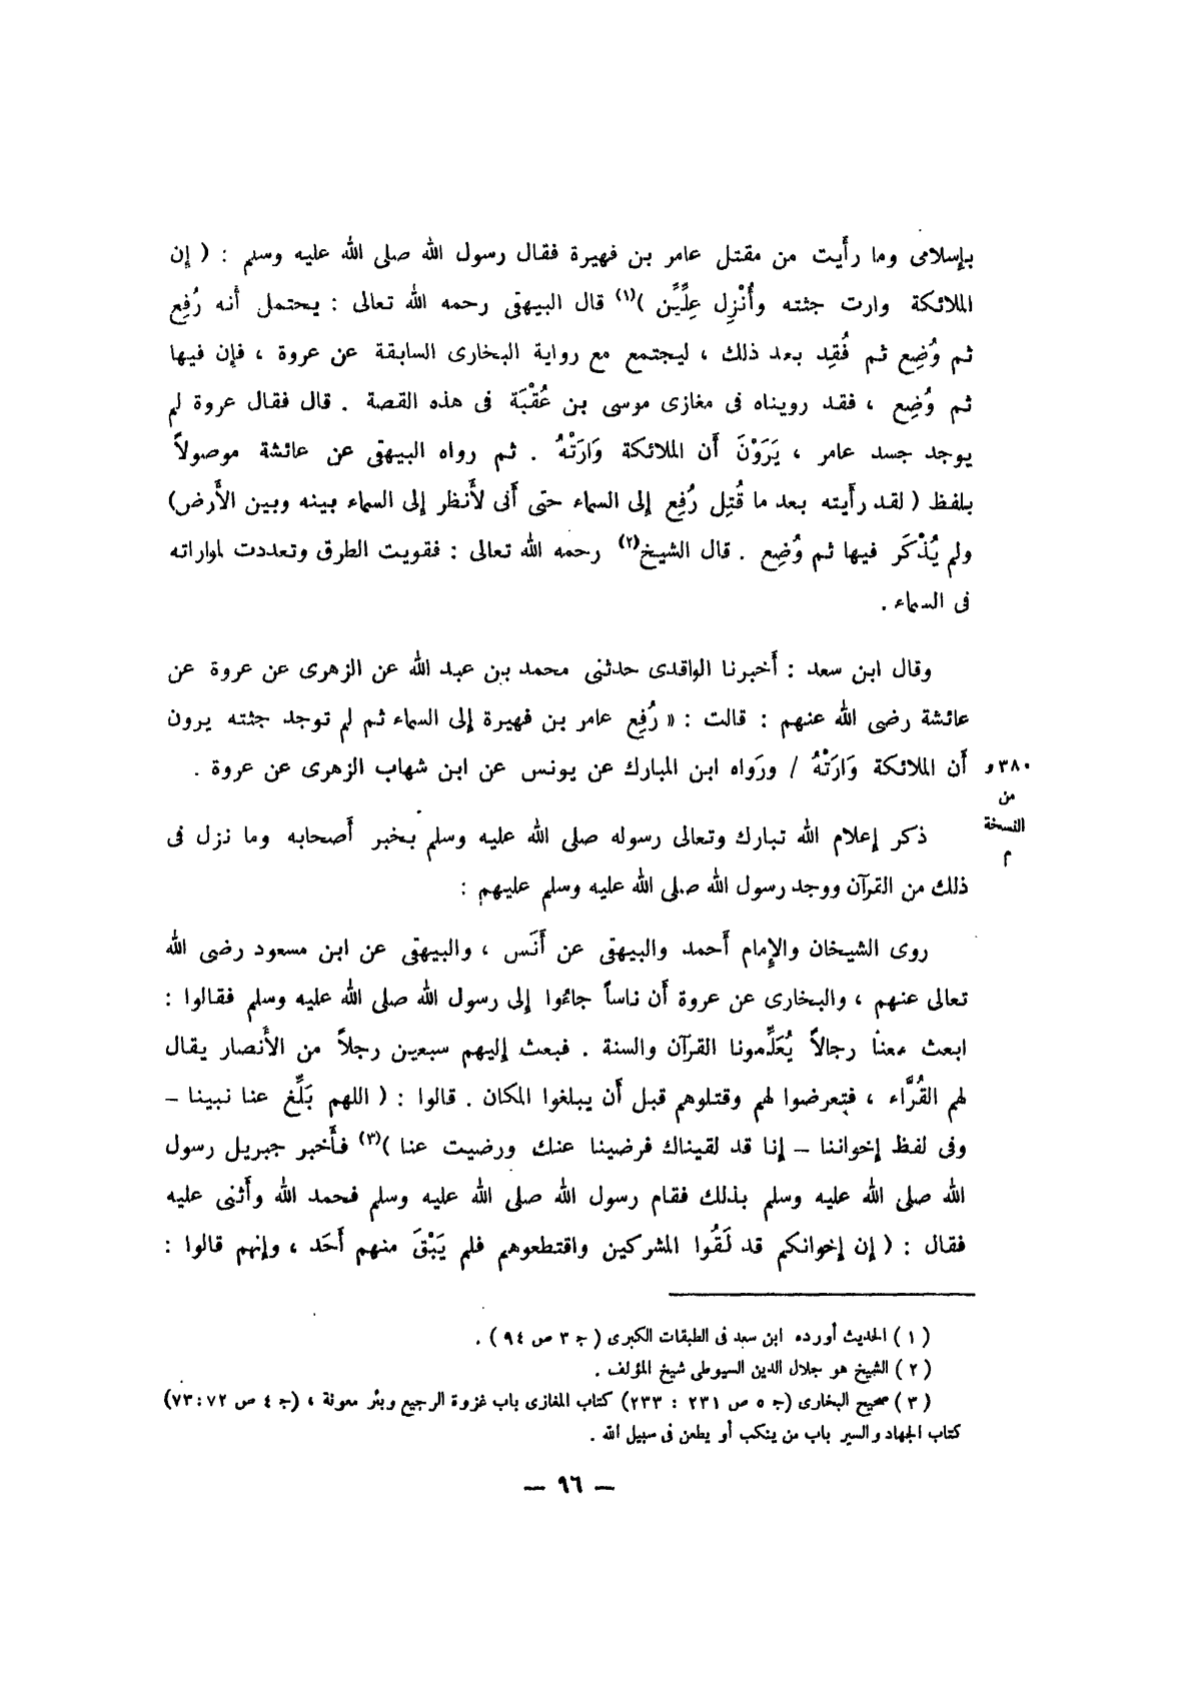 بإسلامى وما رأَيت من مقتل عامر بن فهيرة فقال رسول الله صلى الله عليه وسلم : ( إن
الملائكة وارت جثته وأُنْزِل عِلِّيِّين )(١) قال البيهقى رحمه الله تعالى : يحتمل أنه رُفِع
ثم وُضِع ثم فُقِد بعد ذلك ، ليجتمع مع رواية البخارى السابقة عن عروة ، فإن فيها
ثم وُضِع ، فقد رويناه فى مغازى موسى بن عُقْبَة فى هذه القصة . قال فقال عروة لم
يوجد جسد عامر ، يَرَوْنَ أَن الملائكة وَارَتْهُ . ثم رواه البيهقى عن عائشة موصولاً
بلفظ ( لقد رأَيته بعد ما قُتِل رُفِع إلى السماء حتى أَنى لأَنظر إلى السماء بينه وبين الأَرض)
ولم يُذْكَر فيها ثم وُضِع . قال الشيخ(٢) رحمه الله تعالى : فقويت الطرق وتعددت لمواراته
فى السماء .
وقال ابن سعد : أَخبرنا الواقدى حدثنى محمد بن عبد الله عن الزهرى عن عروة عن
عائشة رضى الله عنهم : قالت : « رُفِع عامر بن فهيرة إلى السماء ثم لم توجد جثته يرون
أَن الملائكة وَارَتْهُ / ورَواه ابن المبارك عن يونس عن ابن شهاب الزهرى عن عروة .
٣٨٠ و
من
النسخة
م
ذكر إعلام الله تبارك وتعالى رسوله صلى الله عليه وسلم بخبر أَصحابه وما نزل فى
ذلك من القرآن ووجد رسول الله صلى الله عليه وسلم عليهم :
روى الشيخان والإمام أَحمد والبيهقى عن أَنَس ، والبيهقى عن ابن مسعود رضى الله
تعالى عنهم ، والبخارى عن عروة أَن ناساً جاءُوا إلى رسول الله صلى الله عليه وسلم فقالوا :
ابعث معنا رجالاً يُعَلِّمونا القرآن والسنة . فبعث إليهم سبعين رجلاً من الأَنصار يقال
لهم القُرَّاء ، فتعرضوا لهم وقتلوهم قبل أَن يبلغوا المكان . قالوا : ( اللهم بَلِّغ عنا نبينا –
وفى لفظ إخواننا – إنا قد لقيناك فرضينا عنك ورضيت عنا )(٣) فأَخبر جبريل رسول
الله صلى الله عليه وسلم بذلك فقام رسول الله صلى الله عليه وسلم فحمد الله وأَثنى عليه
فقال : ( إن إخوانكم قد لَقُوا المشركين واقتطعوهم فلم يَبْقَ منهم أَحَد ، وإنهم قالوا :
( ١ ) الحديث أورده ابن سعد فى الطبقات الكبرى ( ج ٣ ص ٩٤ ) .
( ٢ ) الشيخ هو جلال الدين السيوطى شيخ المؤلف .
( ٣ ) صحيح البخارى (ج ٥ ص ٢٣١ : ٢٣٣) كتاب المغازى باب غزوة الرجيع وبئر معونة ، (ج ٤ ص ٧٢ : ٧٣)
كتاب الجهاد والسير باب من ينكب أو يطعن فى سبيل الله .
– ٩٦ –